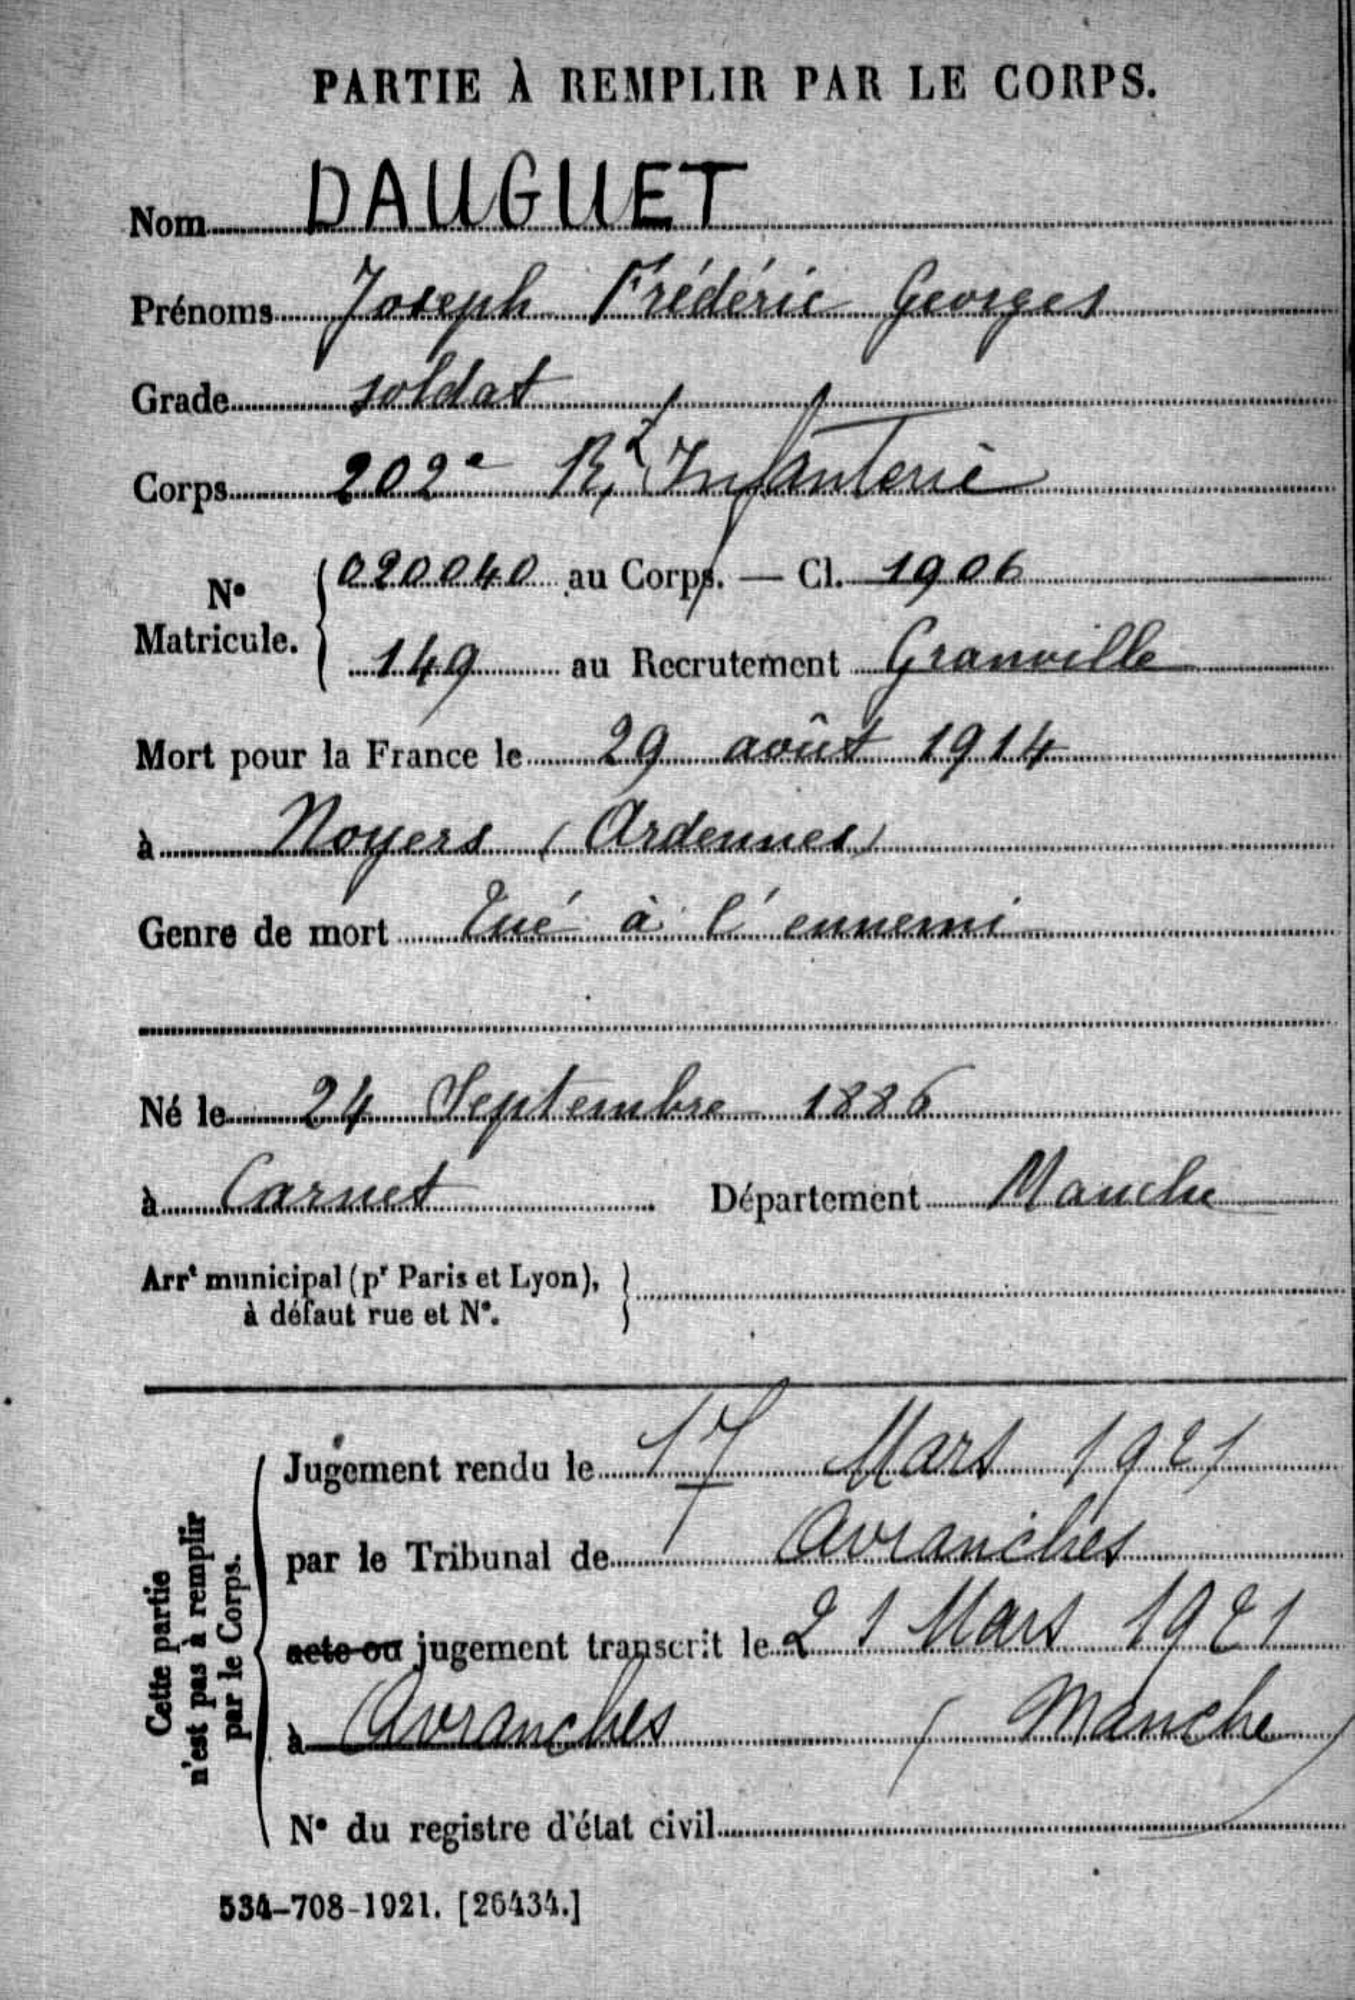 PARTIE À REMPLIR PAR LE CORPS.
Nom DAUGUET
Prénoms Joseph Frédéric Georges
Grade soldat
Corps 202e Rt Infanterie
No Matricule. 020040 au Corps. — Cl. 1906
149 au Recrutement Granville
Mort pour la France le 29 août 1914
à Noyers (Ardennes)
Genre de mort Tué à l'ennemi
Né le 24 Septembre 1886
à Carnet Département Manche
Arrt municipal (pr Paris et Lyon),
à défaut rue et No.
Cette partie
n'est pas à remplir
par le Corps.
Jugement rendu le 17 Mars 1921
par le Tribunal de Avranches
acte ou jugement transcrit le 21 Mars 1921
à Avranches (Manche)
No du registre d'état civil
534-708-1921. [26434.]